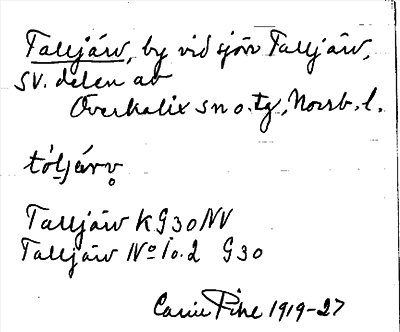 Talljärv, by vid sjön Talljärv,
SV. delen av
Överkalix sn o. tg, Norrb. l.
tóljärv̥
Talljärv K G30 NV
Talljärv No 10.2 G30
1919-27